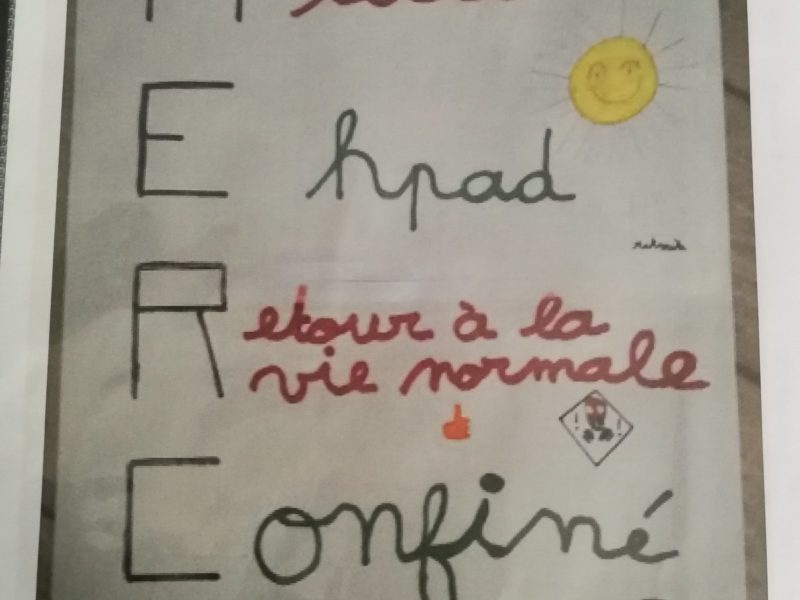 E hpad
R etour à la
vie normale
C onfiné